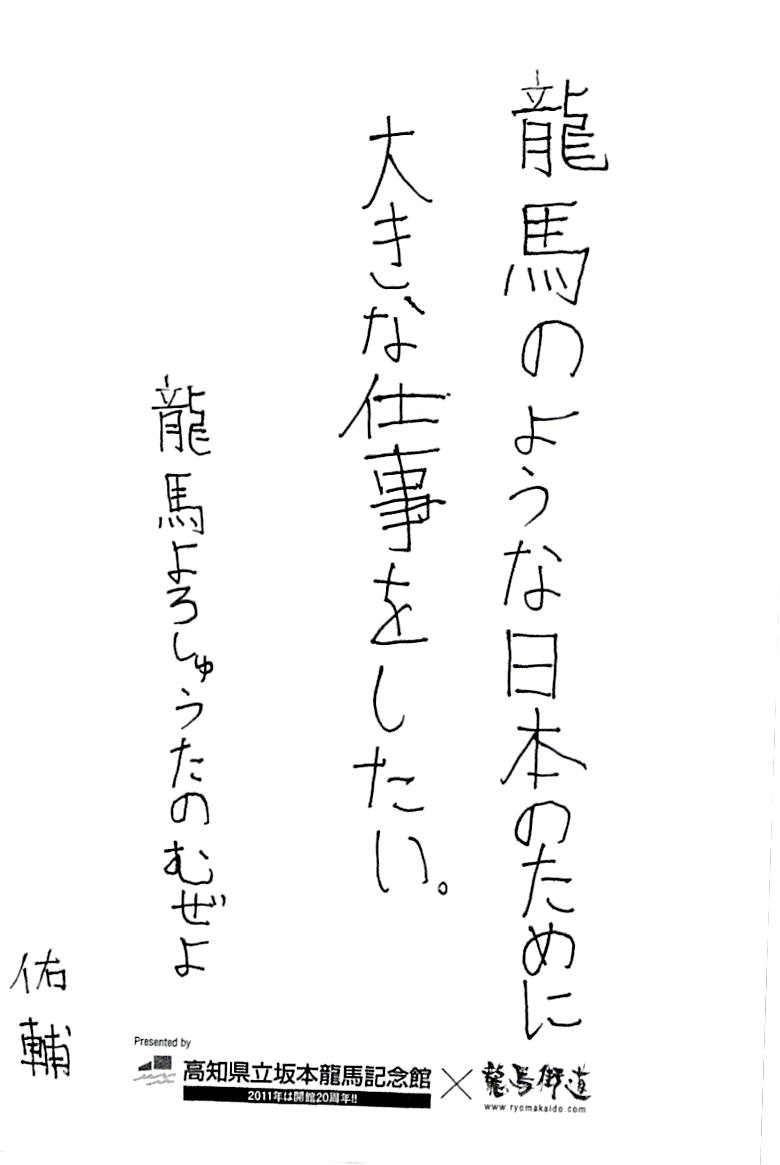 龍馬のような日本のために
大きな仕事をしたい。
龍馬よろしゅうたのむぜよ
佑輔
Presented by
高知県立坂本龍馬記念館×龍馬街道
2011年は開館20周年!!
www.ryomakaido.com